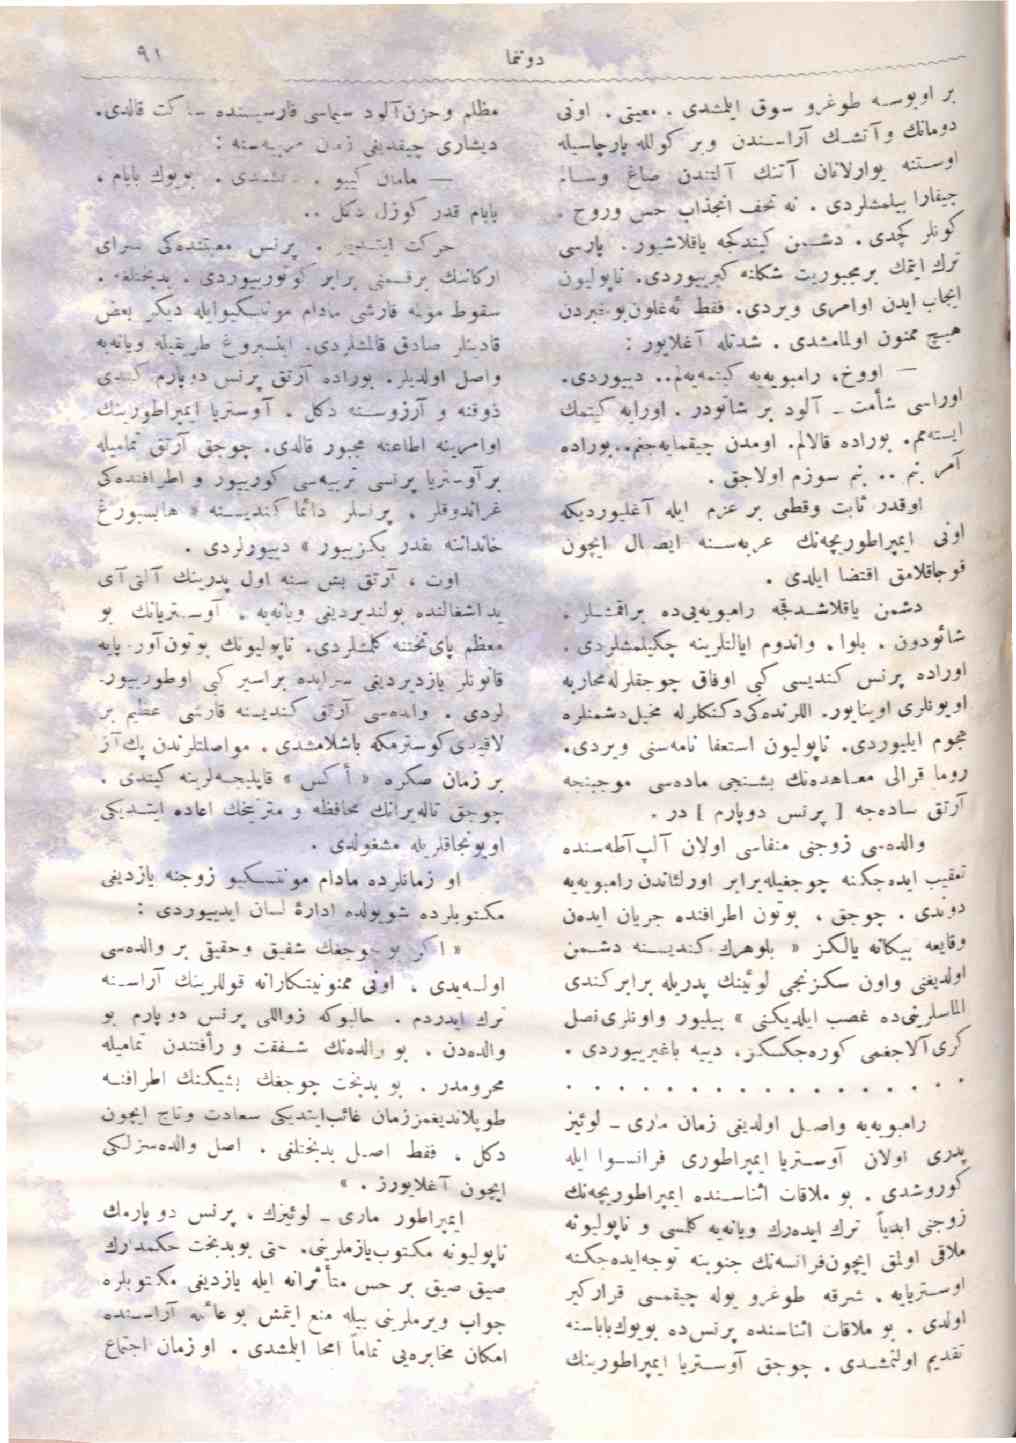 دوتنما
٩١
بر اوبوسه طوغرو سوق ایلمشدی . معیتی . اونی
دومانك وآتشك آراسندن وبر كولله پارچاسیله
اوستنه یوارلانان آتنك آلتندن صاغ وسالم
چیقارا بیلمشلردی . نه تحف انجذاب حس وروح .
كونلر كچدی . دشمن كیتدكجه یاقلاشیور . پارسی
ترك ایتمك برمجبوریت شكلنه كیرییوردی . ناپولیون
ایجاب ایدن اوامری ویردی . فقط نه‌غلون‌بوخبردن
هیچ ممنون اولمامشدی . شدتله آغلایور :
— اووخ، رامبویه‌یه كیتمه‌یه‌لم .. دییوردی.
اوراسی شأمت ـ آلود بر شاتودر . اورایه كیتمك
ایسته‌مم. بوراده قالالم. اومدن چیقمایه‌جغم..بوراده
آمر بنم .. بنم سوزم اولاجق .
اوقدر ثابت وقطعی بر عزم ایله آغلیوردیكه
اونی ایمپراطوریچه‌نك عربه‌سنه ایصال ایچون
قوجاقلامق اقتضا ایلدی .
دشمن یاقلاشدقجه رامبویه‌یی‌ده براقمشلر .
شاتودون ، بلوا، واندوم ایالتلرینه چكیلمشلردی .
اوراده پرنس كندیسی كبی اوفاق چوجقلرله‌محاربه
اویونلری اوینایور. اللرنده‌كی‌دكنكلرله مخیل‌دشمنلره
هجوم ایلیوردی. ناپولیون استعفا نامه‌سنی ویردی.
روما قرالی معاهده‌نك بشنجی ماده‌سی موجبنجه
آرتق ساده‌جه [ پرنس دوپارم ] در .
والده‌سی زوجنی منفاسی اولان آلب‌آطه‌سنده
تعقیب ایده‌جكنه چوجغیله‌برابر اورلئاندن رامبویه‌یه
دوندی . چوجق ، بوتون اطرافنده جریان ایدەن
وقایعه بیكانه یالكز « بلوهرك كندیسنه دشمن
اولدیغنی واون سكزنجی لوئینك پدریله برابركندی
الماسلرینی‌ده غصب ایلدیكنی » بیلیور واونلری‌نصل
كری‌آلاجغمی كوره‌جكسكز، دییه باغیرییوردی .
. . . . . . . . . . . . . . . .
رامبویه‌یه واصل اولدیغی زمان ماری ـ لوئیز
پدری اولان آوستریا ایمپراطوری فرانسوا ایله
كوروشدی . بو ملاقات اثناسنده ایمپراطوریچه‌نك
زوجنی ابدیاً ترك ایده‌رك ویانه‌یه كلمسی و ناپولیونه
ملاقی اولمق ایچون‌فرانسه‌نك جنوبنه توجه‌ایده‌جكنه
اوستریایه ، شرقه طوغرو یوله چیقمسی قرارگیر
اولدی . بو ملاقات اثناسنده پرنس‌ده بویوك‌باباسنه
تقدیم اولنمشدی . چوجق آوستریا ایمپراطورینك
مظلم وحزن‌آلود سیماسی قارشیسنده ساكت قالدی.
دیشاری چیقدیغی زمان مربیه‌سنه :
— مادام كییو . . . بویوك بابام ،
بابام قدر كوزل دكل ..
حركت ایتدیلر . پرنس معیتنده‌كی سرای
اركاننك برقسمنی برابر كوتورییوردی . بدبختلغه ،
سقوط موله قارشی مادام مونتسكیوایله دیكر بعض
قادینلر صادق قالمشلردی. اینسبروغ طریقیله ویانه‌یه
واصل اولدیلر. بوراده آرتق پرنس دوپارم كندی
ذوقنه و آرزوسنه دكل . آوستریا ایمپراطورینك
اوامرینه اطاعته مجبور قالدی. چوجق آرتق تمامیله
برآوستریا پرنسی تربیه‌سی كورییور و اطرافنده‌كی
غراندوقلر ، پرنسلر دائما كندیسنه « هابسبورغ
خانداننه نقدر بكزییور » دییورلردی .
اوت ، آرتق بش سنه اول پدرینك آلتی آی
یداشغالنده بولندیردیغی ویانه‌یه ، آوستریانك بو
معظم پای‌تختنه كلمشلردی. ناپولیونك بوتون‌آوروپایه
قانونلر یازدیردیغی سرایده براسیر كبی اوطورییور.
لردی . والده‌سی آرتق كندیسنه قارشی عظیم بر
لاقیدی‌كوسترمكه باشلامشدی . مواصلتلرندن پك‌آز
بر زمان صكره « أكس » قاپلیجه‌لرینه كیتدی .
چوجق تاله‌یرانك محافظه و مترنیخك اعاده ایتدیكی
اویونجاقلریله مشغولدی .
او زمانلرده مادام مونتسكیو زوجنه یازدیغی
مكتوبلرده شویولده ادارهٔ لسان ایدییوردی :
« اكر بو چوجغك شفیق وحقیقی بر والده‌سی
اولسه‌یدی ، اونی ممنونیتكارانه قوللرینك آراسنه
ترك ایدردم . حالبوكه زواللی پرنس دوپارم بو
والده‌دن ، بو والده‌نك شفقت و رأفتندن تمامیله
محرومدر . بو بدبخت چوجغك بشیكنك اطرافنه
طوپلاندیغمززمان غائب‌ایتدیكی سعادت وتاج ایچون
دكل ، فقط اصل بدبختلغی . اصل والده‌سزلكی
ایچون آغلایورز . »
ایمپراطور ماری ـ لوئیزك ، پرنس دوپارمك
ناپولیونه مكتوب‌یازملرینی، حتی بوبدبخت حكمدارك
صیق صیق بر حس متأثرانه ایله یازدیغی مكتوبلره
جواب ویرملرینی بیله منع ایتمش بو عائله آراسنده
امكان مخابره‌یی تماماً امحا ایلمشدی . او زمان اجتماع